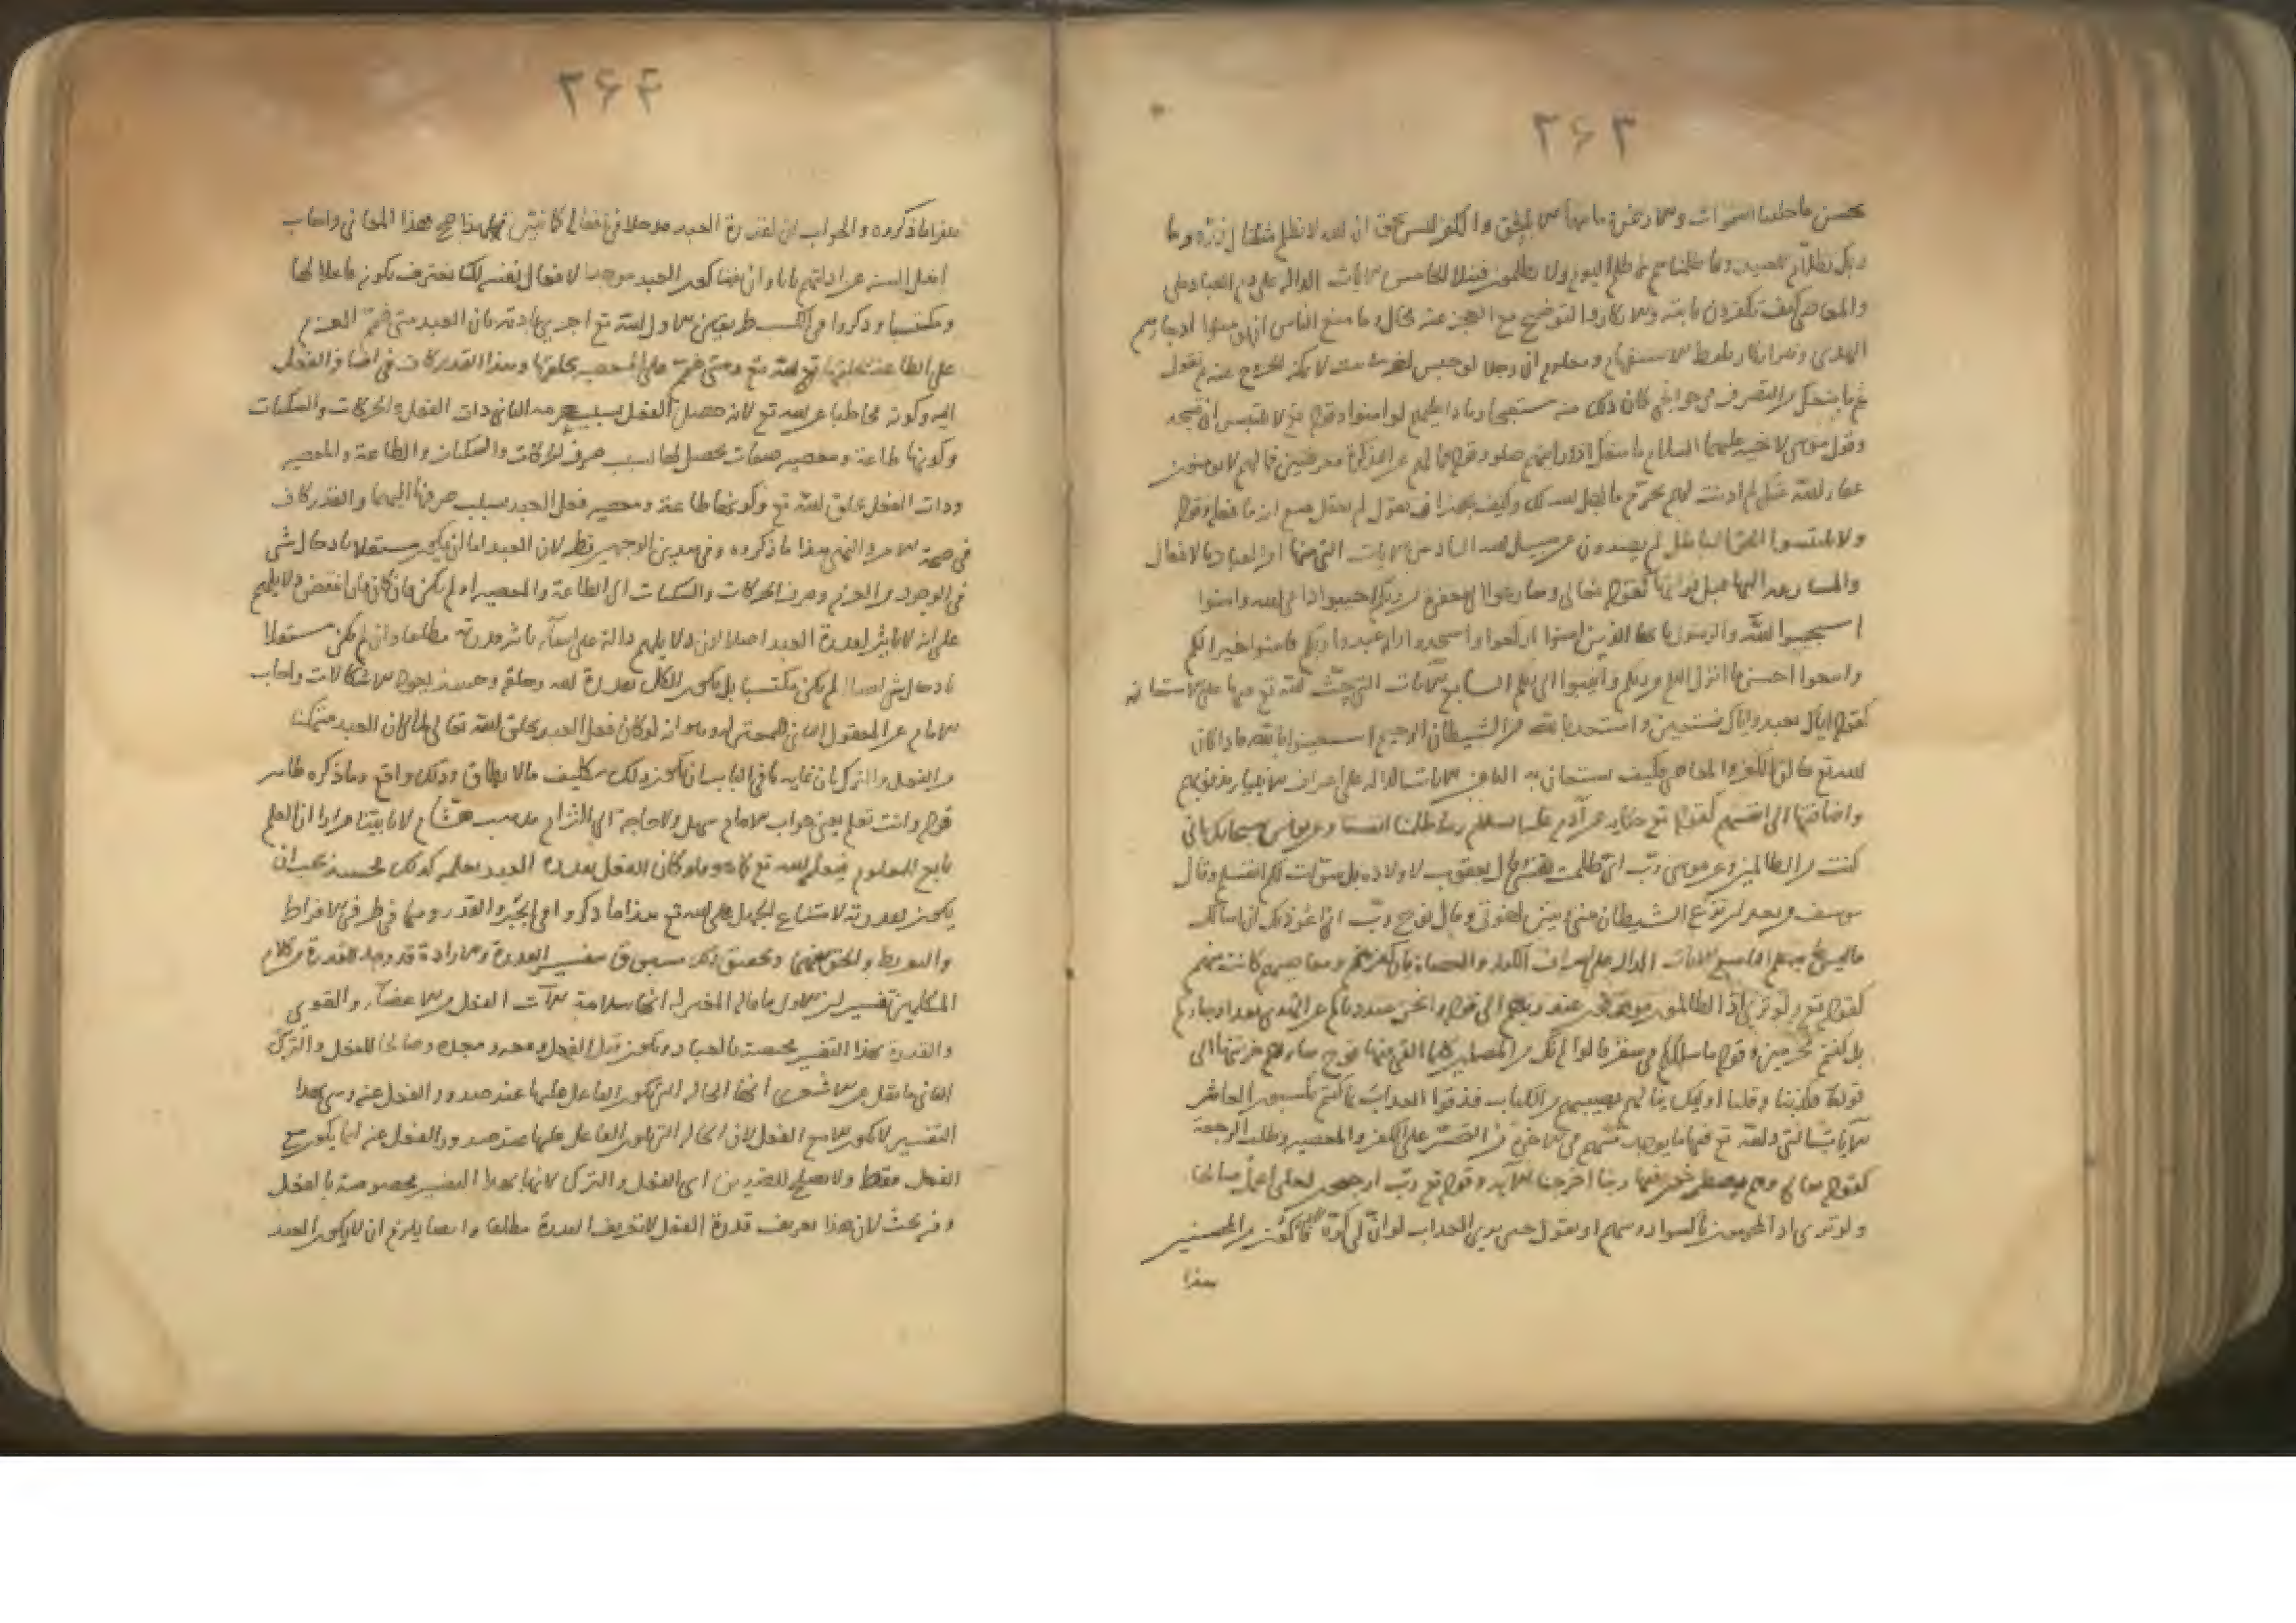 ٣۶٣
بحسن ما خلقنا السموات والارض وما بينهما الا بالحق والكفر ليس بحق ان الله لا يظلم مثقال ذرة وما
ربك بظلام للعبيد وما ظلمناهم لا ظلم اليوم ولا يظلمون فتيلا الخامس الايات الدالة على ذم العباد على
والمعاصي كيف تكفرون بالله والانكار والتوضيح مع العجز عنه محال وما منع الناس ان يؤمنوا اذ جاءهم
الهدى وهو انكار بلفظ الاستفهام ومعلوم ان رجلا لو حبس لاخر في بيت لا يمكنه الخروج عنه ثم يقول
ما شغلك من التصرف في حوائجي كان ذلك منه مستقبحا وماذا عليهم لو امنوا وقوله تع لابليس ان تسجد
وقول موسى لاخيه عليهما السلام ما منعك اذ رايتهم ضلوا وقوله فما لهم عن التذكرة معرضين فما لهم لا يؤمنون
عفا الله عنك لم اذنت لهم لم تحرم ما احل الله لك وكيف يجوز ان يقول لم تفعل مع انه ما فعله وقوله
ولا تلبسوا الحق بالباطل لم تصدون عن سبيل الله السادس الايات التي فيها امر العباد بالافعال
والمسارعة اليها قبل فواتها كقوله تعالى وسارعوا الى مغفرة من ربكم اجيبوا داعي الله وامنوا
استجيبوا لله وللرسول يا ايها الذين امنوا اركعوا واسجدوا واعبدوا ربكم فامنوا خيرا لكم
واتبعوا احسن ما انزل اليكم من ربكم وانيبوا الى ربكم السابع الايات التي حث الله تع فيها على الاستعانة
كقوله اياك نعبد واياك نستعين واستعذ بالله من الشيطان الرجيم استعينوا بالله فاذا كان
الله تع خالق الكفر والمعاصي فكيف يستعان به الثامن الايات الدالة على اعتراف الانبياء بذنوبهم
واضافتها الى انفسهم كقوله تع حكاية عن آدم عليه السلام ربنا ظلمنا انفسنا وعن يونس سبحانك اني
كنت من الظالمين وعن موسى رب اني ظلمت نفسي وقال يعقوب لاولاده بل سولت لكم انفسكم وقال
يوسف من بعد ان نزغ الشيطان بيني وبين اخوتي وقال نوح رب اني اعوذ بك ان اسالك
ما ليس لي به علم التاسع الايات الدالة على اعتراف الكفار والعصاة بان كفرهم ومعاصيهم كانت منهم
كقوله تع ولو ترى اذ الظالمون موقوفون عند ربهم الى قوله انحن صددناكم عن الهدى بعد اذ جاءكم
بل كنتم مجرمين وقوله ما سلككم في سقر قالوا لم نك من المصلين كلما القي فيها فوج سالهم خزنتها الى
قوله فكذبنا وقلنا اولئك ينالهم نصيبهم من الكتاب فذوقوا العذاب بما كنتم تكسبون العاشر
الايات التي ذكر الله تع فيها ما يوجد منهم في الاخرة من التحسر على الكفر والمعصية وطلب الرجعة
كقوله تعالى وهم يصطرخون فيها ربنا اخرجنا الآية وقوله تع رب ارجعون لعلي اعمل صالحا
ولو ترى اذ المجرمون ناكسوا رؤسهم او تقول حين ترى العذاب لو ان لي كرة فاكون من المحسنين
هذا
٣۶۴
ما ذكروه والجواب ان لقدرة العبد مدخلا في افعاله
اهل السنة عن ادلتهم بانا وان نفينا كون العبد موجدا لافعال نفسه لكنا نعترف بكونه فاعلا لها
ومكتسبا وذكروا في الكسب طريقين الاول ان الله تع اجرى عادته بان العبد متى صمم العزم
على الطاعة يخلقها الله تع ومتى صمم على المعصية يخلقها وهذا القدر كاف في اضافة الفعل
اليه وكونه مخاطبا عن الله تع لانه حصل الفعل بسبب عزمه الثاني ذات الفعل والحركات والسكنات
وكونها طاعة ومعصية صفات تحصل لها بسبب صرف الحركات والسكنات والطاعة والمعصية
وذات الفعل بخلق الله تع وكونها طاعة ومعصية فعل العبد بسبب صرفها اليهما والقدر كاف
في صحة الامر والنهي هذا ما ذكروه وفي هذين الوجهين نظر لان العبد اما ان يكون مستقلا بادخال شئ
في الوجود من العزم وصرف الحركات والسكنات الى الطاعة والمعصية او لم يكن فان كان فانتقض دلايلهم
على انه لا تاثير لقدرة العبد اصلا لان دلايلهم دالة على انتفاء تاثير قدرته مطلقا وان لم يكن مستقلا
بادخال شئ اصلا لم يكن مكتسبا بل يكون الكل بقدرة الله وخلقه وحينئذ يعود الاشكالات واجاب
الامام عن المعقول الثاني للمعتزلة وهو انه لو كان فعل العبد بخلق الله تعالى لما كان العبد متمكنا
من الفعل والترك بان غاية ما في الباب ان يكون ذلك تكليف ما لا يطاق وذلك واقع وما ذكره ظاهر
قوله وانت تعلم يعني جواب الامام سهل ولا حاجة الى التزام مذهب هشام لانا بينا مرارا ان العلم
تابع للمعلوم فيعلم الله تع كما هو فلو كان الفعل بقدرة العبد يعلمه كذلك فحينئذ يجب ان
يكون بقدرته لامتناع الجهل على الله تع هذا ما ذكروا في الجبر والقدر وهما في طرفي الافراط
والتفريط والحق بينهما وتحقيق ذلك مسبوق بتفسير القدرة والارادة قد وجد للقدرة من كلام
المتكلمين تفسيران الاول ما قاله المعتزلة انها سلامة آلات الفعل من الاعضاء والقوى
والقدرة بهذا التفسير مختصة بالعباد وتكون قبل الفعل ومعه وبعده وصالحا للفعل والترك
الثاني ما نقل عن الاشعري انها الحالة التي يكون الفاعل عليها عند صدور الفعل عنه وهي بهذا
التفسير لا تكون الا مع الفعل لان الحالة التي يكون الفاعل عليها عند صدور الفعل عنه انما يكون مع
الفعل فقط ولا تصلح للضدين اي الفعل والترك لانها بهذا التفسير مخصوصة بالفعل
وفيه بحث لان هذا تعريف قدرة الفعل لا تعريف القدرة مطلقا وايضا يلزم ان لا يكون العبد